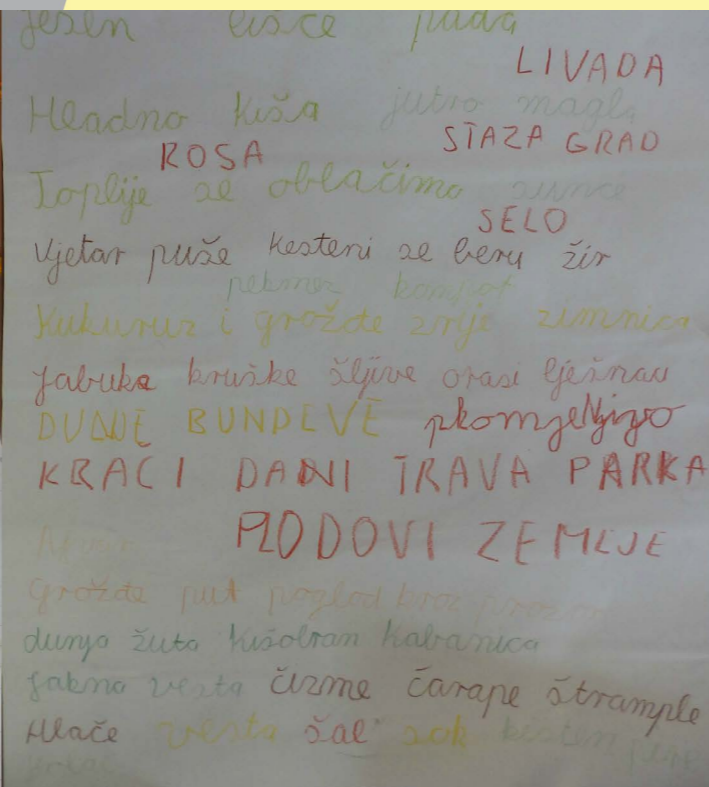 jesen lišće pada
LIVADA
Hladno kiša jutro magla
ROSA STAZA GRAD
Toplije se oblačimo sunce
SELO
Vjetar puše kesteni se beru žir
pekmez kompot
Kukuruz i grožđe zrije zimnica
Jabuke kruške šljive orasi lješnaci
DUNJE BUNDEVE
KRAĆI DANI TRAVA PARKA
PLODOVI ZEMLJE
Grožđe put pogled kroz prozor
dunja žuta kišobran kabanica
Jakna vesta čizme čarape štrample
Hlače vesta šal sok kesten